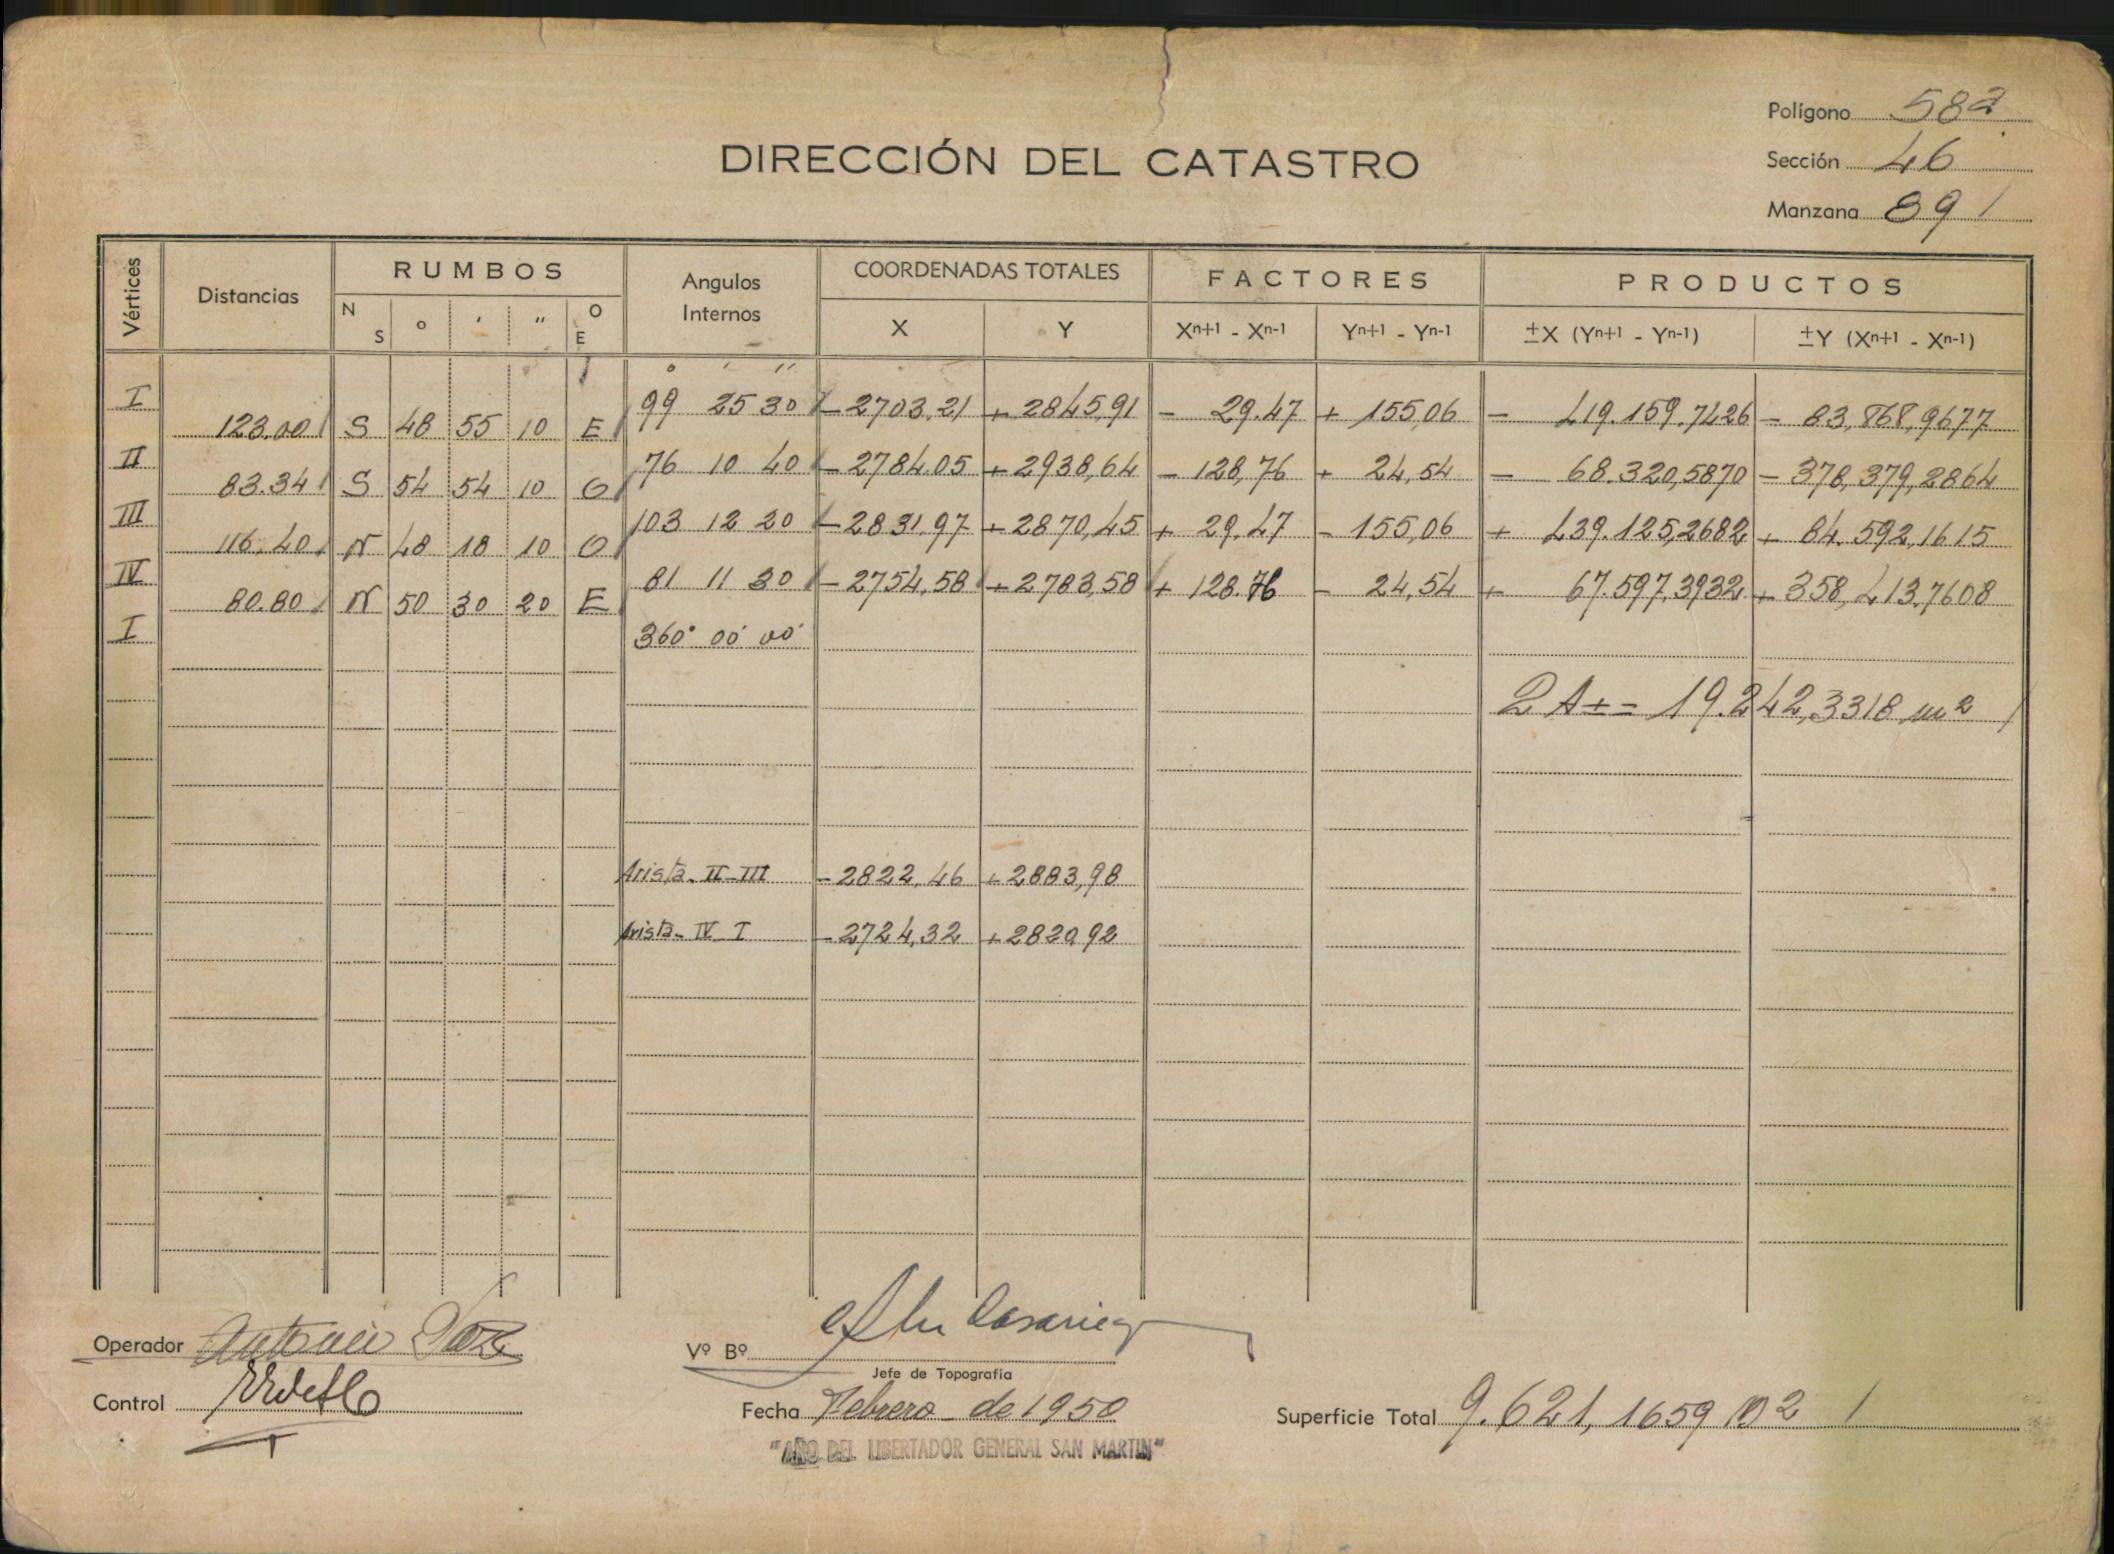 Polígono 582
Sección 46
Manzana 891
DIRECCIÓN DEL CATASTRO
Vértices Distancias RUMBOS Angulos Internos COORDENADAS TOTALES FACTORES PRODUCTOS
N S o ' " O E X Y Xn+1 - Xn-1 Yn+1 - Yn-1 ±X (Yn+1 - Yn-1) ±Y (Xn+1 - Xn-1)
° ' "
I 99 25 30 - 2703,21 + 2845,91 - 29.47 + 155,06 - 419.159,7426 - 83,868,9677
123.00 S 48 55 10 E
II 76 10 40 - 2784.05 + 2938,64 - 128,76 + 24,54 - 68.320,5870 - 378,379,2864
83.34 S 54 54 10 O
III 103 12 20 - 2831,97 + 2870,45 + 29,47 - 155,06 + 439.125,2682 + 84.592,1615
116,40 N 48 18 10 O
IV 81 11 30 - 2754,58 + 2783,58 + 128.76 - 24,54 + 67.597,3932 + 358,413,7608
80.80 N 50 30 20 E
I 360° 00' 00'
2 A ± = 19.242,3318 m2
Arista II-III - 2822,46 + 2883,98
Arista IV I - 2724,32 + 2820,92
Operador Antonio
Control
Vº Bº
Jefe de Topografía
Fecha Febrero de 1950
"AÑO DEL LIBERTADOR GENERAL SAN MARTIN"
Superficie Total 9.621,1659 m2